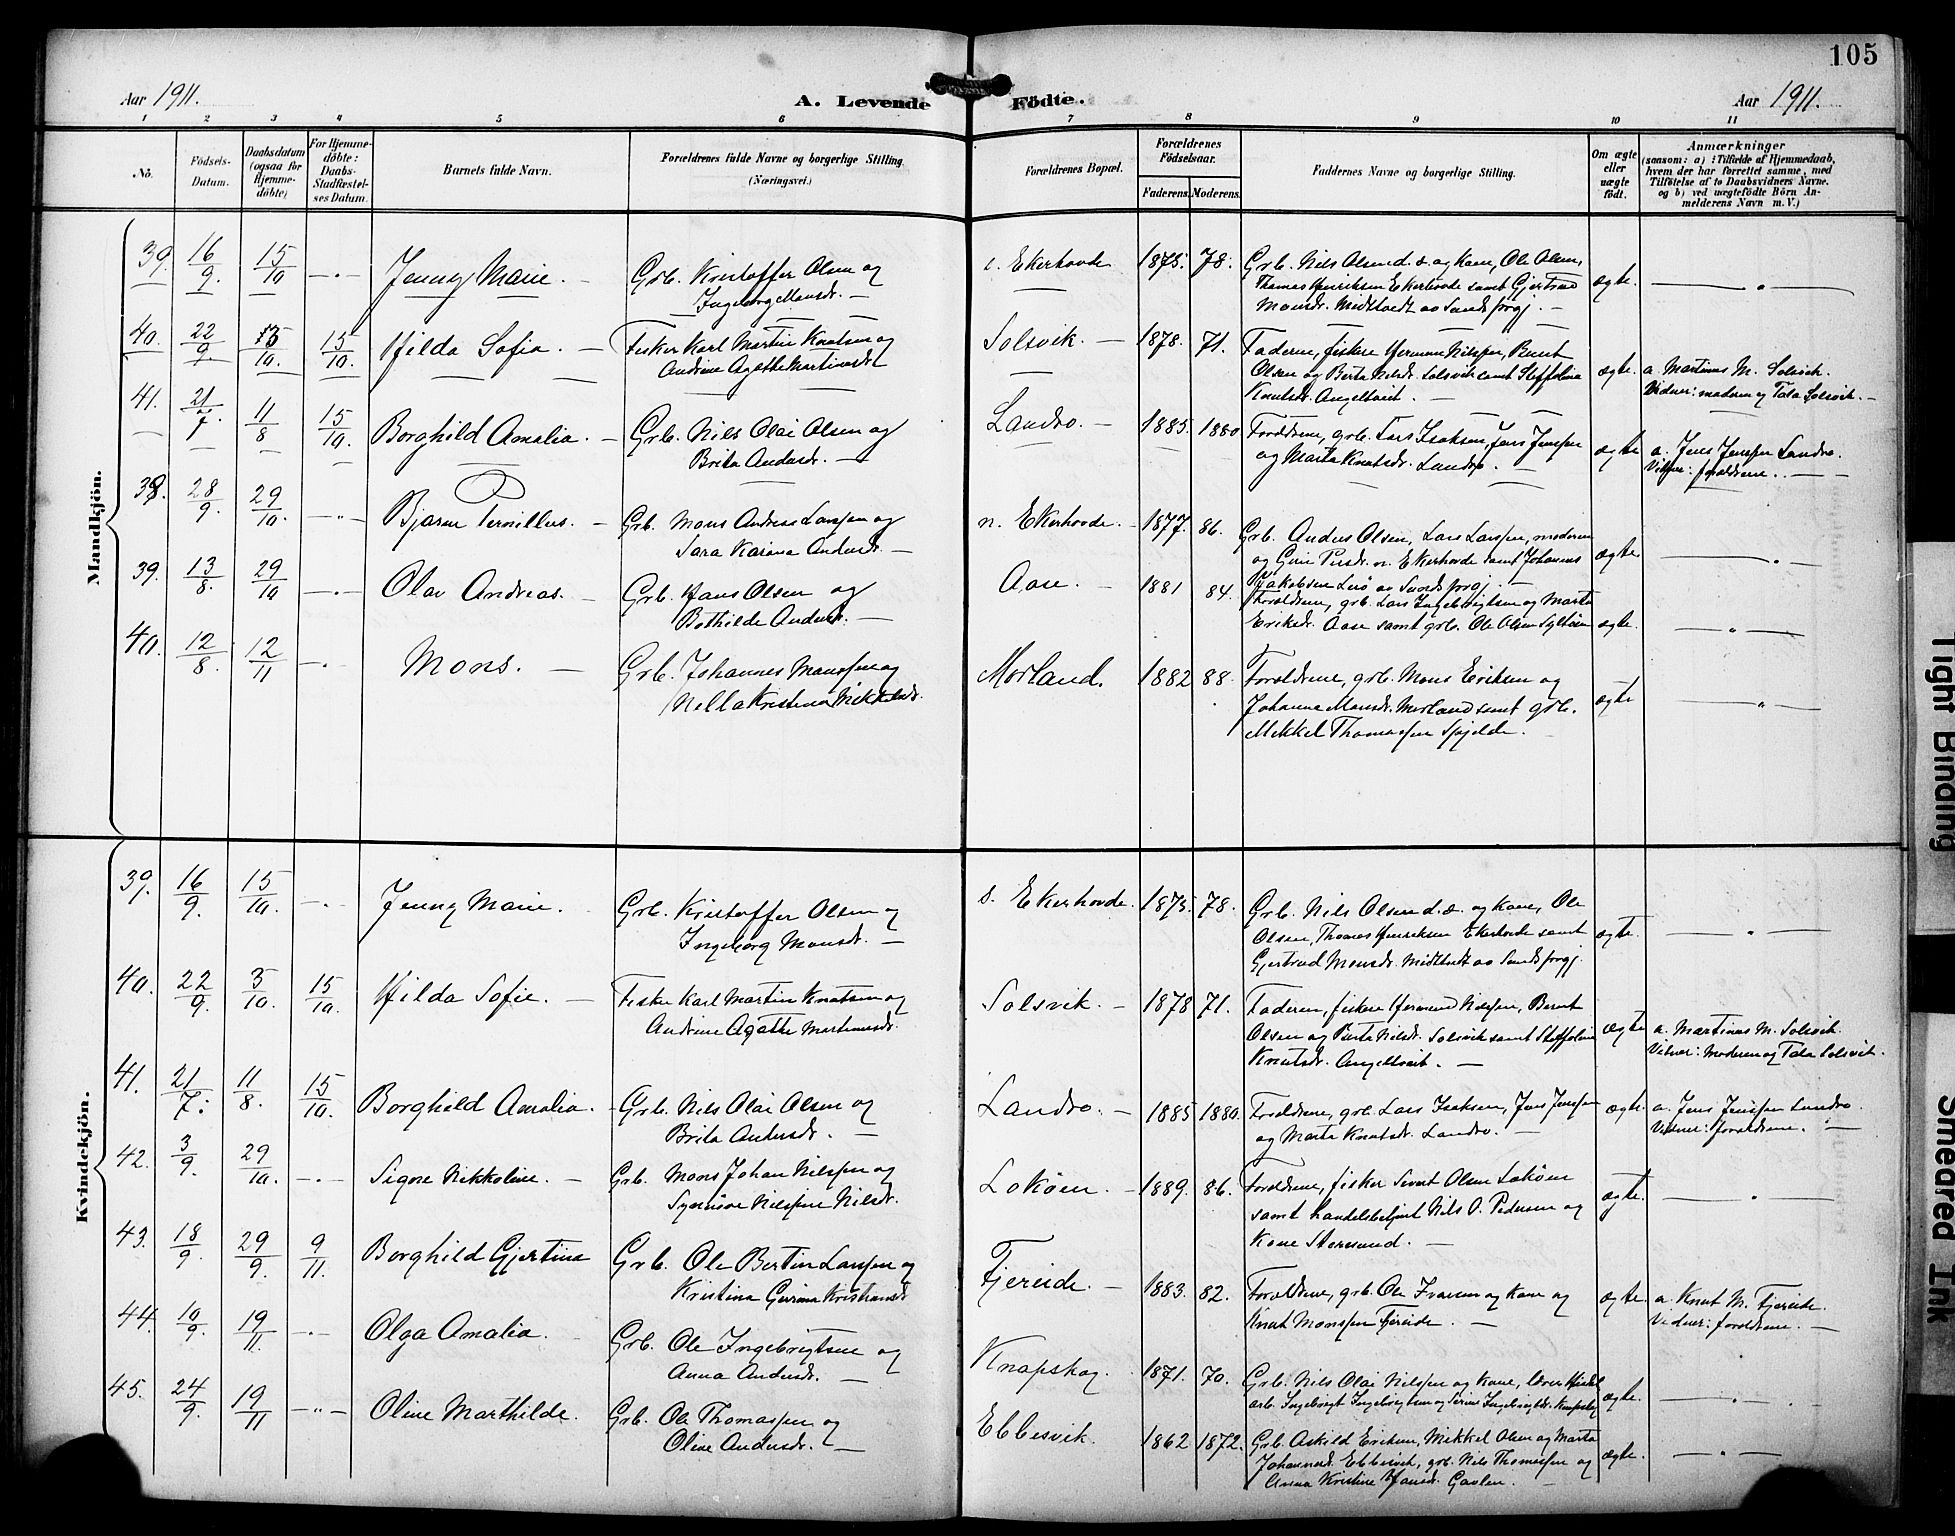 105
Aar 1911.
A. Levende Födte.
Aar 1911.
1 2 3 4 5 6 7 8 9 10 11
No.
Födsels-Datum.
Daabsdatum (ogsaa for Hjemme-döbte)
For Hjemme-döbte: Daabs-Stadfæstel-ses Datum.
Barnets fulde Navn.
Forældrenes fulde Navne og borgerlige Stilling.
(Næringsvei.)
Forældrenes Bopæl.
Forældrenes Födselsaar.
Faderens. Moderens.
Faddernes Navne og borgerlige Stilling.
Om ægte eller uægte födt.
Anmærkninger
(saasom: a) i Tilfælde af Hjemmedaab,
hvem der har forrettet samme, med
Tilföielse af to Daabsvidners Navne.
og b) ved uægtefödte Börn An-
melderens Navn m. V.)
Mandkjön.
39. 16/9. 15/10 Jenny Marie. Grb. Kristoffer Olsen og
Ingeborg Monsdr.
s. Ekerhovde 1875. 78. Grb. Nils Olsen d. æ. og Kone, Ole Olsen,
Thomas Henriksen Ekerhovde samt Gjertrud
Monsdr. Midttvedt av Sunds prgj. ægte.
40. 22/9. 15/10. 15/10. Hilda Sofia. Fisker Karl Martin Knutsen og
Andrine Agathe Martinusdr
Solsvik. 1878. 71. Faderne, fiskere Herman Nilssen, Bernt
Olsen og Berta Nilsdr. Solsvik samt Steffolina
Knutsdr. Angeltveit. ægte. a. Martinus M. Solsvik.
Vidner: moderen og Tala Solsvik.
41. 21/7. 11/8 15/10. Borghild Amalia. Grb. Nils Olai Olsen og
Brita Andersdr.
Landro. 1885. 1880 Forældrene, grb. Lars Isaksen, Jens Jenssen
og Marta Knutsdr. Landro. ægte a. Jens Jenssen Landro.
Vidner: forældrene.
38. 28/9. 29/10. Bjarne Pernillus. Grb. Mons Andreas Larssen og
Sara Karina Andersdr.
n. Ekerhovde. 1877. 86. Grb. Anders Olsen, Lars Larssen, moderen
og Guri Persdr. n. Ekerhovde samt Johannes
Jakobsen Lerö av Sunds prgj. ægte.
39. 13/8. 29/10 Olav Andreas. Grb. Hans Olsen og
Bothilde Andersdr.
Aase. 1881 84. Forældrene, grb. Lars Ingebrigtsen og Marta
Eriksdr. Aase samt grb. Ole Olsen Syltöen ægte.
40. 12/8. 12/11 Mons. Grb. Johannes Monssen og
Nella Kristina Mikkelsdr.
Morland. 1882 88. Forældrene, grb. Mons Eriksen og
Johanne Monsdr. Morland samt grb.
Mikkel Thomassen Spjelde. ægte
Kvindekjön.
39. 16/9. 15/10. Jenny Marie. Grb. Kristoffer Olsen og
Ingeborg Monsdr.
s. Ekerhovde. 1875. 78. Grb. Nils Olsen d. æ. og Kone, Ole
Olsen, Thomas Henriksen Ekerhovde samt
Gjertrud Monsdr. Midttvedt av Sunds prgj. ægte.
40. 22/9. 3/10. 15/10. Hilda Sofie. Fisker Karl Martin Knutsen og
Andrine Agathe Martinusdr.
Solsvik. 1878 71. Faderen, fiskere Herman Nilssen, Bernt
Olsen og Berta Nilsdr. Solsvik samt Steffolina
Knutsdr. Angeltveit. ægte a. Martinus M. Solsvik.
Vidner: Moderen og Tala Solsvik.
41. 21/7. 11/8. 15/10. Borghild Amalia. Grb. Nils Olai Olsen og
Brita Andersdr.
Landro. 1885 1880. Forældrene, grb. Lars Isaksen, Jens Jenssen
og Marta Knutsdr. Landro. ægte. a. Jens Jenssen Landro.
Vidner: forældrene.
42. 3/9. 29/10. Signe Nikkoline. Grb. Mons Johan Nilssen og
Synnöve Nilssine Nilsdr.
Loköen. 1889. 86. Forældrene, fisker Sivert Olsen Loköen
samt handelsbetjent Nils O. Pedersen og
Kone Storesund. ægte.
43. 18/9. 29/9. 9/11. Borghild Gjertina Grb. Ole Bertin Larssen og
Kristina Gurina Kristiansdr
Fjereide. 1883. 82. Forældrene, grb. Ole Iversen og Kone og
Knut Monssen Fjereide. ægte. a. Knut M. Fjereide.
Vidner: forældrene.
44. 10/9. 19/11. Olga Amalia. Grb. Ole Ingebrigtsen og
Anna Andersdr.
Knapskog. 1871. 70. Grb. Nils Olai Nilssen og Kone,
arb. Ingebrigt Ingebrigtsen og Serine Ingebrigtsdr. Knapskog ægte.
45. 24/9. 19/11 Oline Marthilde. Grb. Ole Thomassen og
Oline Andersdr.
Ebbesvik. 1862 1872. Grb. Askild Eriksen, Mikkel Olsen og Marta
Johannesdr. Ebbesvik, grb. Nils Thomassen og
Anna Kristine Hansdr. Gavlen. ægte.
Tight Binding
Smeared Ink